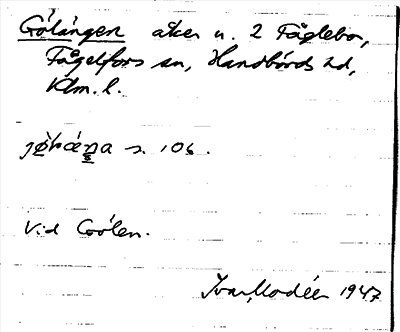 Gölängen åker u. 2 Fåglebo,
Fågelfors sn, Handbörds hd,
Klm. l.
s. 106.
Vid Gölen.
Ivar Modéer 1947